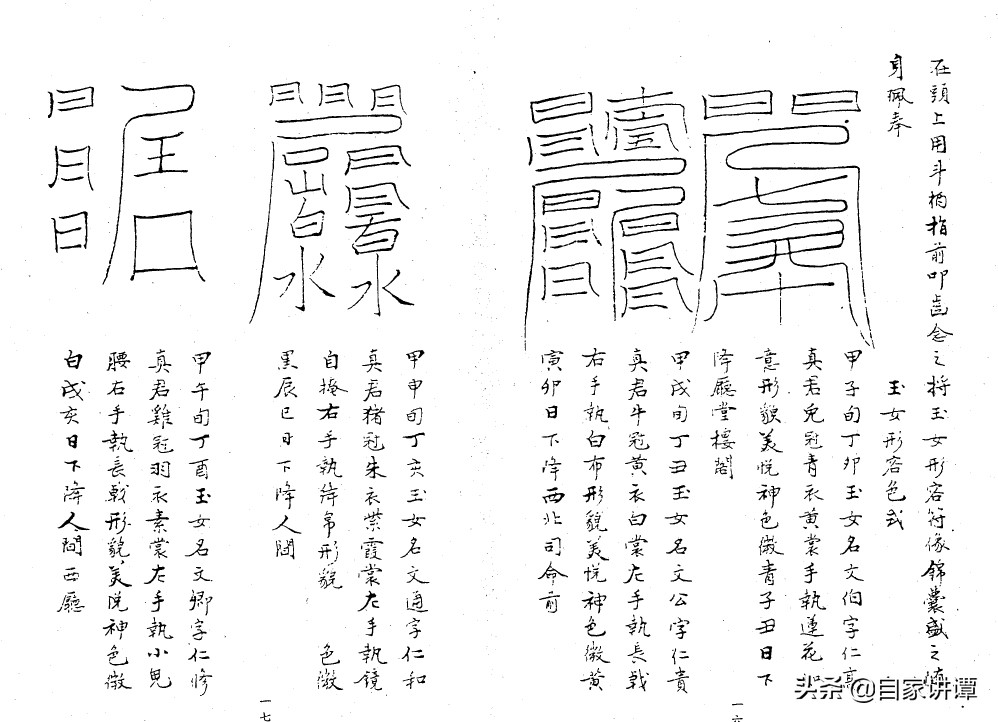 在頸上用斗柄指前叩齒念之将玉女形容符像錦囊盛之
身珮奉
玉女形容色式
甲子旬丁卯玉女名文伯字仁高
真君兔冠青衣黄裳手執蓮花
意形貌美悦神色微青子丑日下
降廳堂樓閣
甲戌旬丁丑玉女名文公字仁貴
真君牛冠黄衣白裳左手執長戟
右手執白布形貌美悦神色微黄
寅卯日下降西北司命前
一六
甲申旬丁亥玉女名文通字仁和
真君猪冠朱衣紫霞裳左手執鏡
自掩右手執絳帛形貌 色微
黑辰巳日下降人間
甲午旬丁酉玉女名文卿字仁修
真君雞冠羽衣素裳左手執小兒
腰右手執長戟形貌美悦神色微
白戌亥日下降人間西廳
一七
头条@自家讲谭